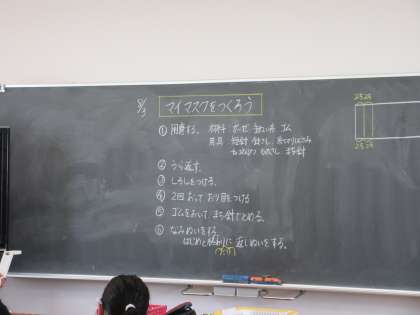 8/3
マイマスクをつくろう
① 用意する。 材料 ガーゼ ぬい糸 ゴム
用具 縫針 針さし 糸切りばさみ
ものさし まち針
② うら返す。
③ しるしをつける。
④ 2回おって おり目をつける
⑤ ゴムをおいて まち針でとめる。
⑥ なみぬいをする。
はじめと終わりに 返しぬいをする。
2.5 2.5
2.5 2.5